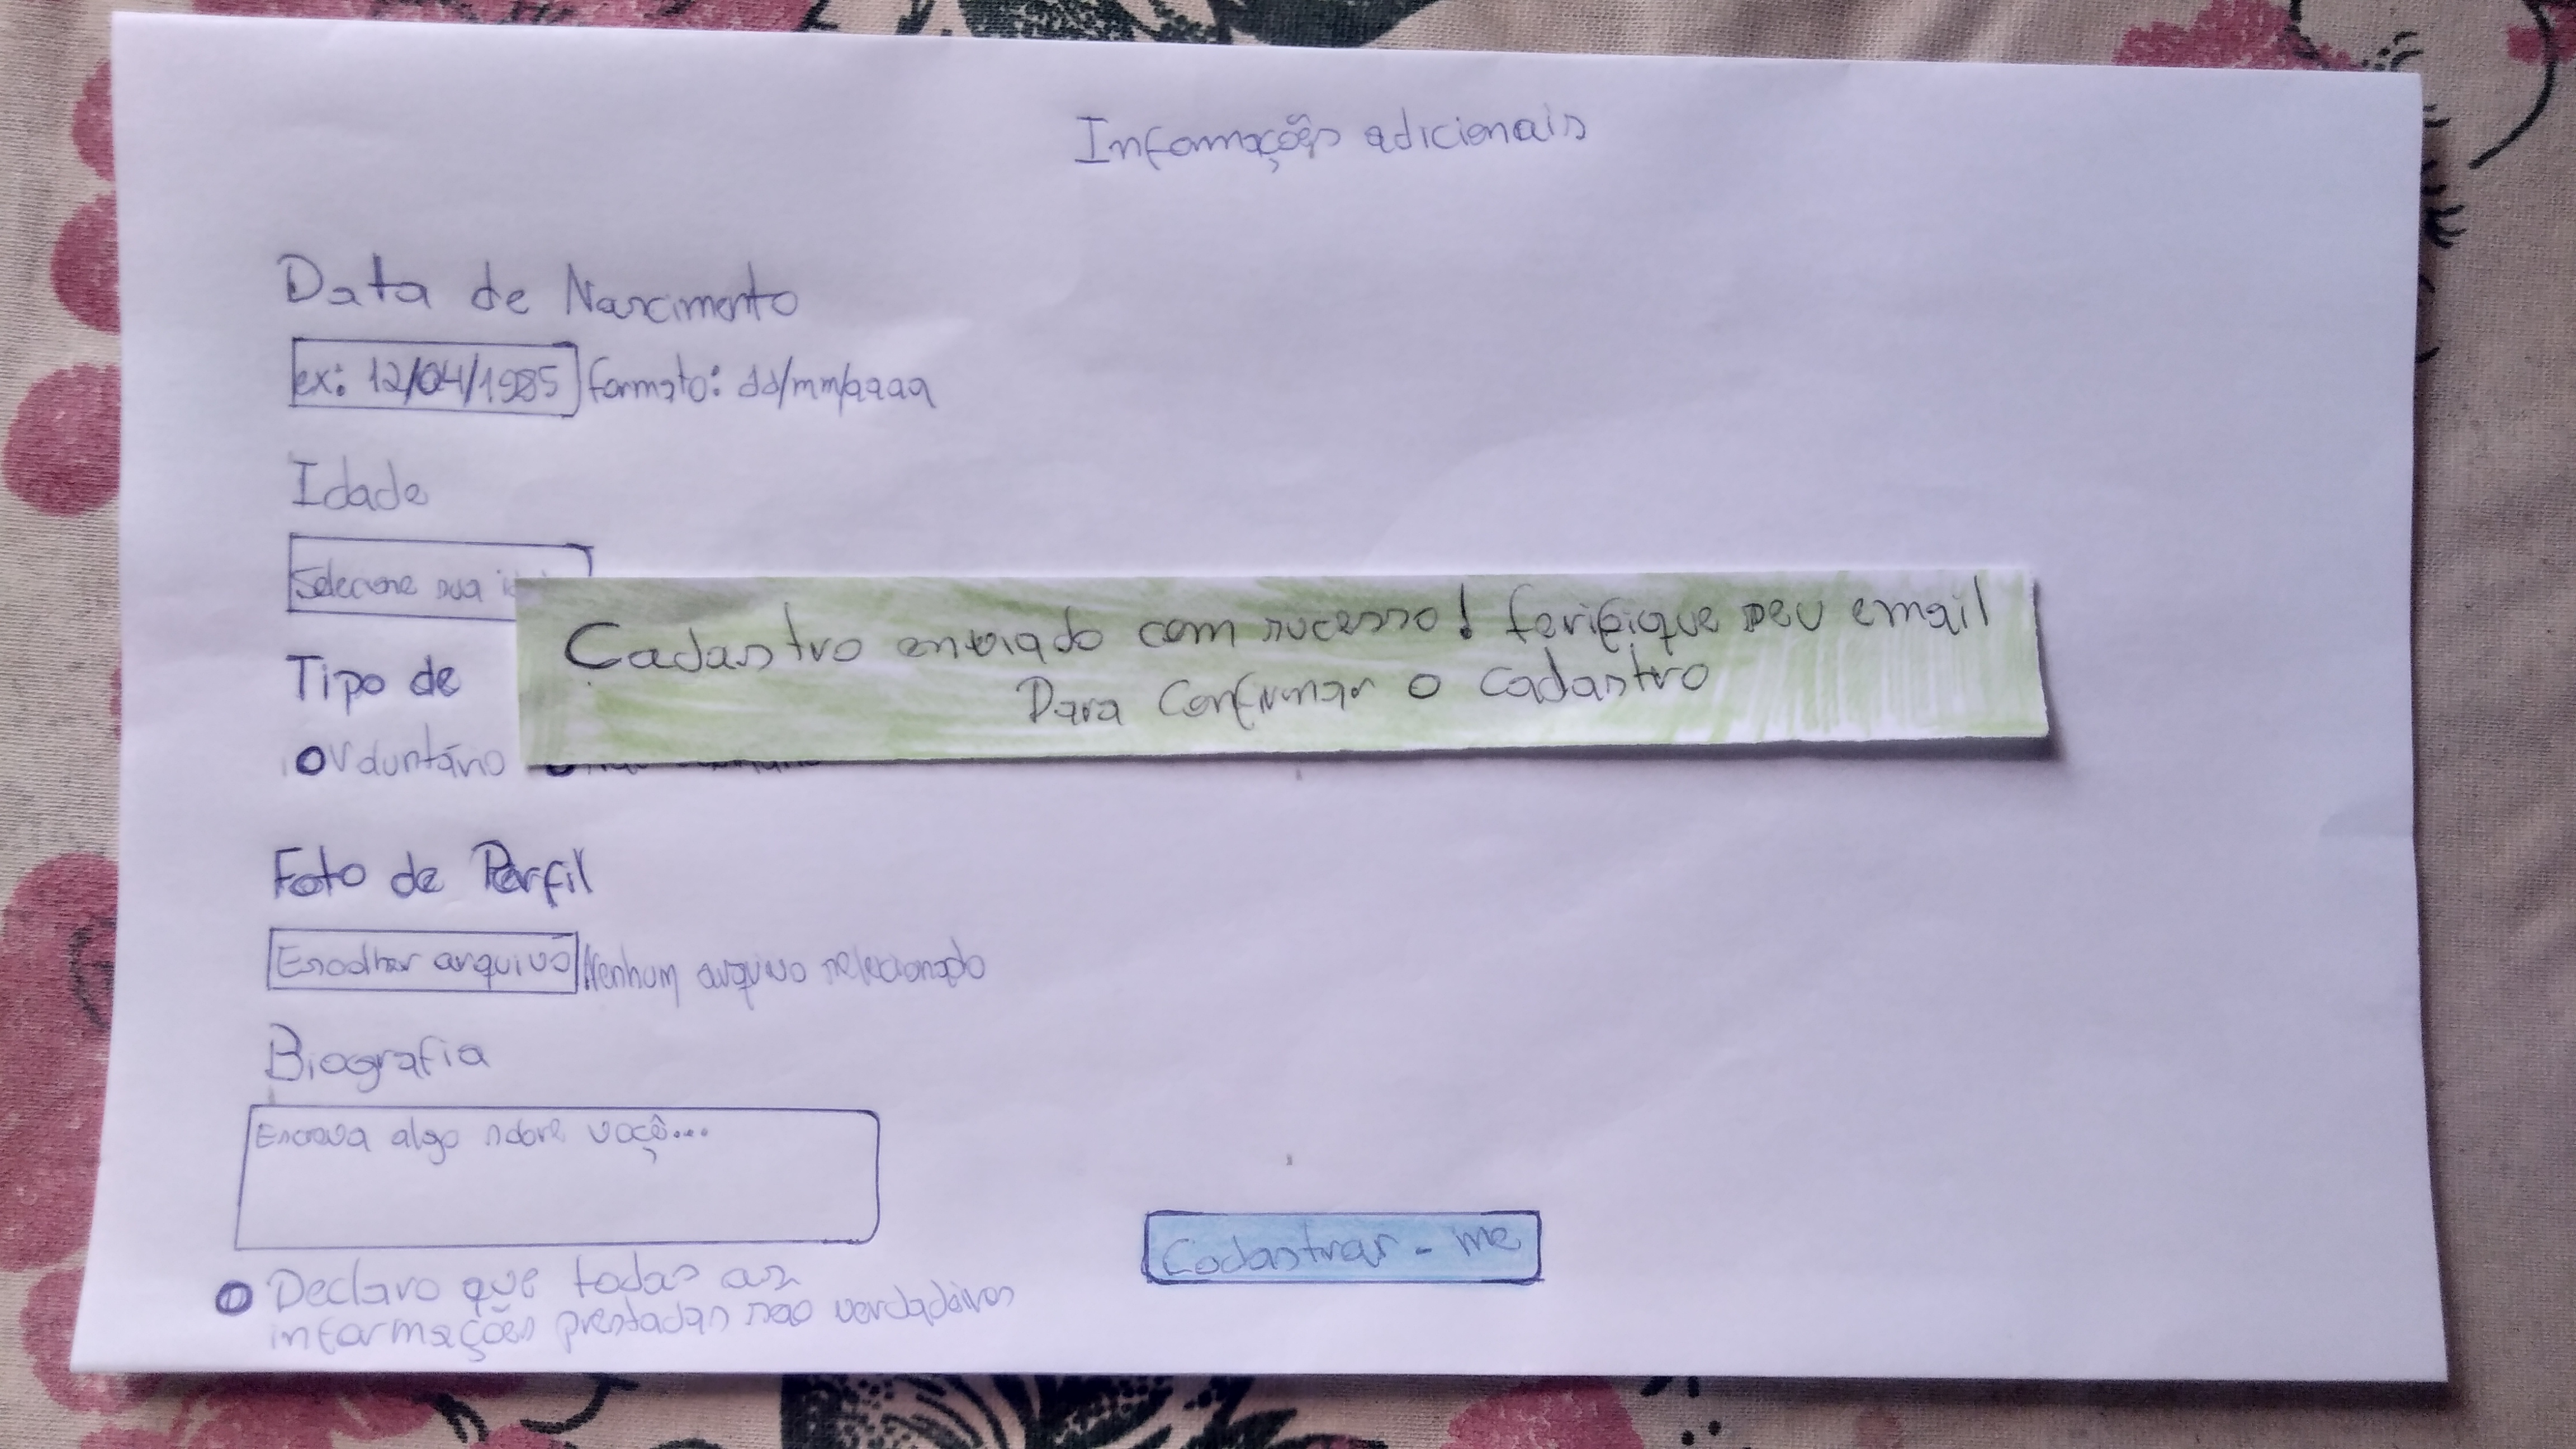 Informações adicionais
Data de Nascimento
ex: 12/04/1985 formato: dd/mm/aaaa
Idade
Selecione sua
Cadastro enviado com sucesso! ferifique seu email
Para Confirmar o cadastro
Tipo de
Voluntário
Foto de Perfil
Escolher arquivo Nenhum arquivo selecionado
Biografia
Escreva algo sobre voçê...
Cadastrar-me
Declaro que todas as
informações prestadas são verdadeiras